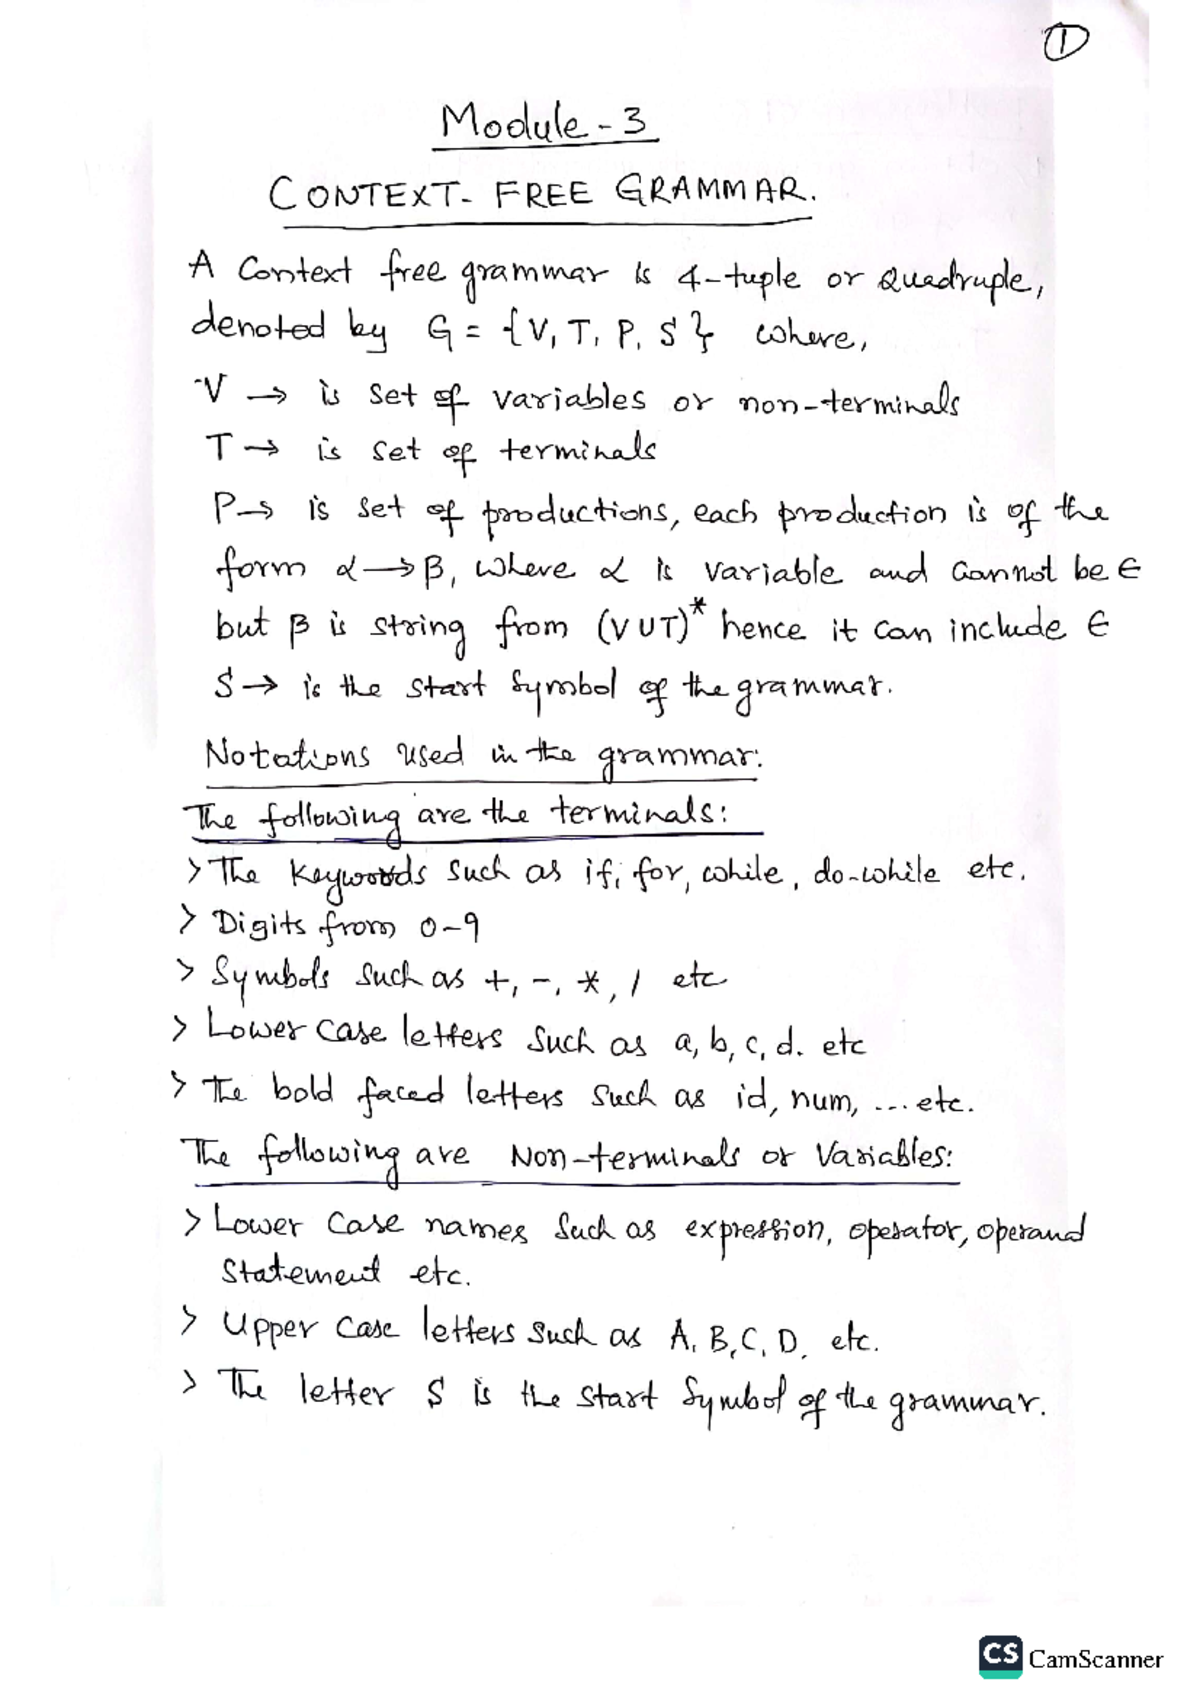 1
Module - 3
CONTEXT- FREE GRAMMAR.
A Context free grammar is 4-tuple or Quadruple,
denoted by G = {V, T, P, S} where,
V → is set of variables or non-terminals
T → is set of terminals
P → is set of productions, each production is of the
form α → β, where α is variable and cannot be ∈
but β is string from (V U T)* hence it can include ∈
S → is the start symbol of the grammar.
Notations used in the grammar:
The following are the terminals:
> The keywords such as if, for, while, do-while etc.
> Digits from 0-9
> Symbols such as +, -, *, / etc
> Lower case letters such as a, b, c, d. etc
> The bold faced letters such as id, num, ... etc.
The following are Non-terminals or Variables:
> Lower case names such as expression, operator, operand
statement etc.
> Upper case letters such as A, B, C, D, etc.
> The letter S is the start symbol of the grammar.
CS CamScanner